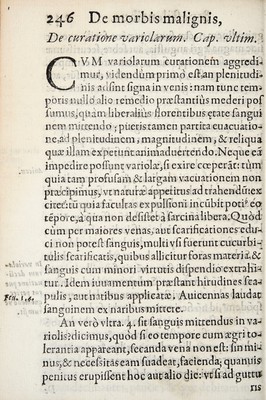 246 De morbis malignis,
De curatione variolarum. Cap. vltim.
CVM variolarum curationem aggredi-
mur, videndum primo est an plenitudi-
nis adsint signa in venis: nam tunc tem-
poris nullo alio remedio præstantius mederi pos
sumus, quam liberalius florentibus ætate sangui
nem mittendo; pueris tamen partita euacuatio-
ne, ad plenitudinem, magnitudinem, & reliqua
quæ illam expetunt animaduertendo. Neque eã
impedire possunt variolæ, si exire cœperãt: tùm
quia tam profusam & largam vacuationem non
præcipimus, vt naturæ appetitus ad trahendũ ex
citetũ quia facultas expulsioni incũbit potiꝰ eo
tẽpore, à qua non desistet à sarcina libera. Quòd
cum per maiores venas, aut scarificationes edu-
ci non potest sanguis, multi vsi fuerunt cucurbi-
tulis scarificatis, quibus allicitur foras materia, &
sanguis cum minori virtutis dispendio extrahi-
tur. Idem iuuamentum præstant hirudines sca-
Fen. 1.4. pulis, aut naribus applicatæ. Auicennas laudat
sanguinem ex naribus mittere.
An verò vltra. 4. sit sanguis mittendus in va-
riolis: dicimus, quòd si eo tempore cum ægri to-
lerantia appareant, secanda vena non est: sin mi-
nus, & necessitas eam suadeat, facienda; quanuis
penitus erupissent hoc aut alio die: vt si ad guttu
ris